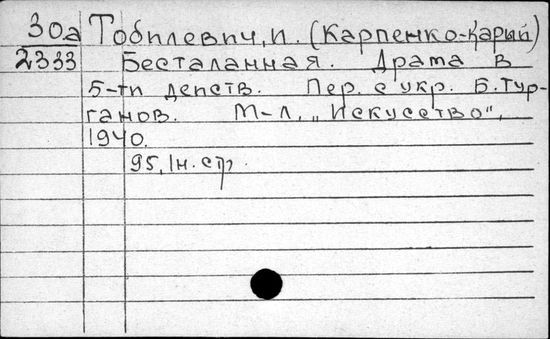 30а Тобилевич, И. (Карпенко-Карый)
2333 Бесталанная. Драма в
5-ти действ. Пер. с укр. Б. Тур-
ганов. М-Л, „Искусство",
1940.
95, 1н. стр.